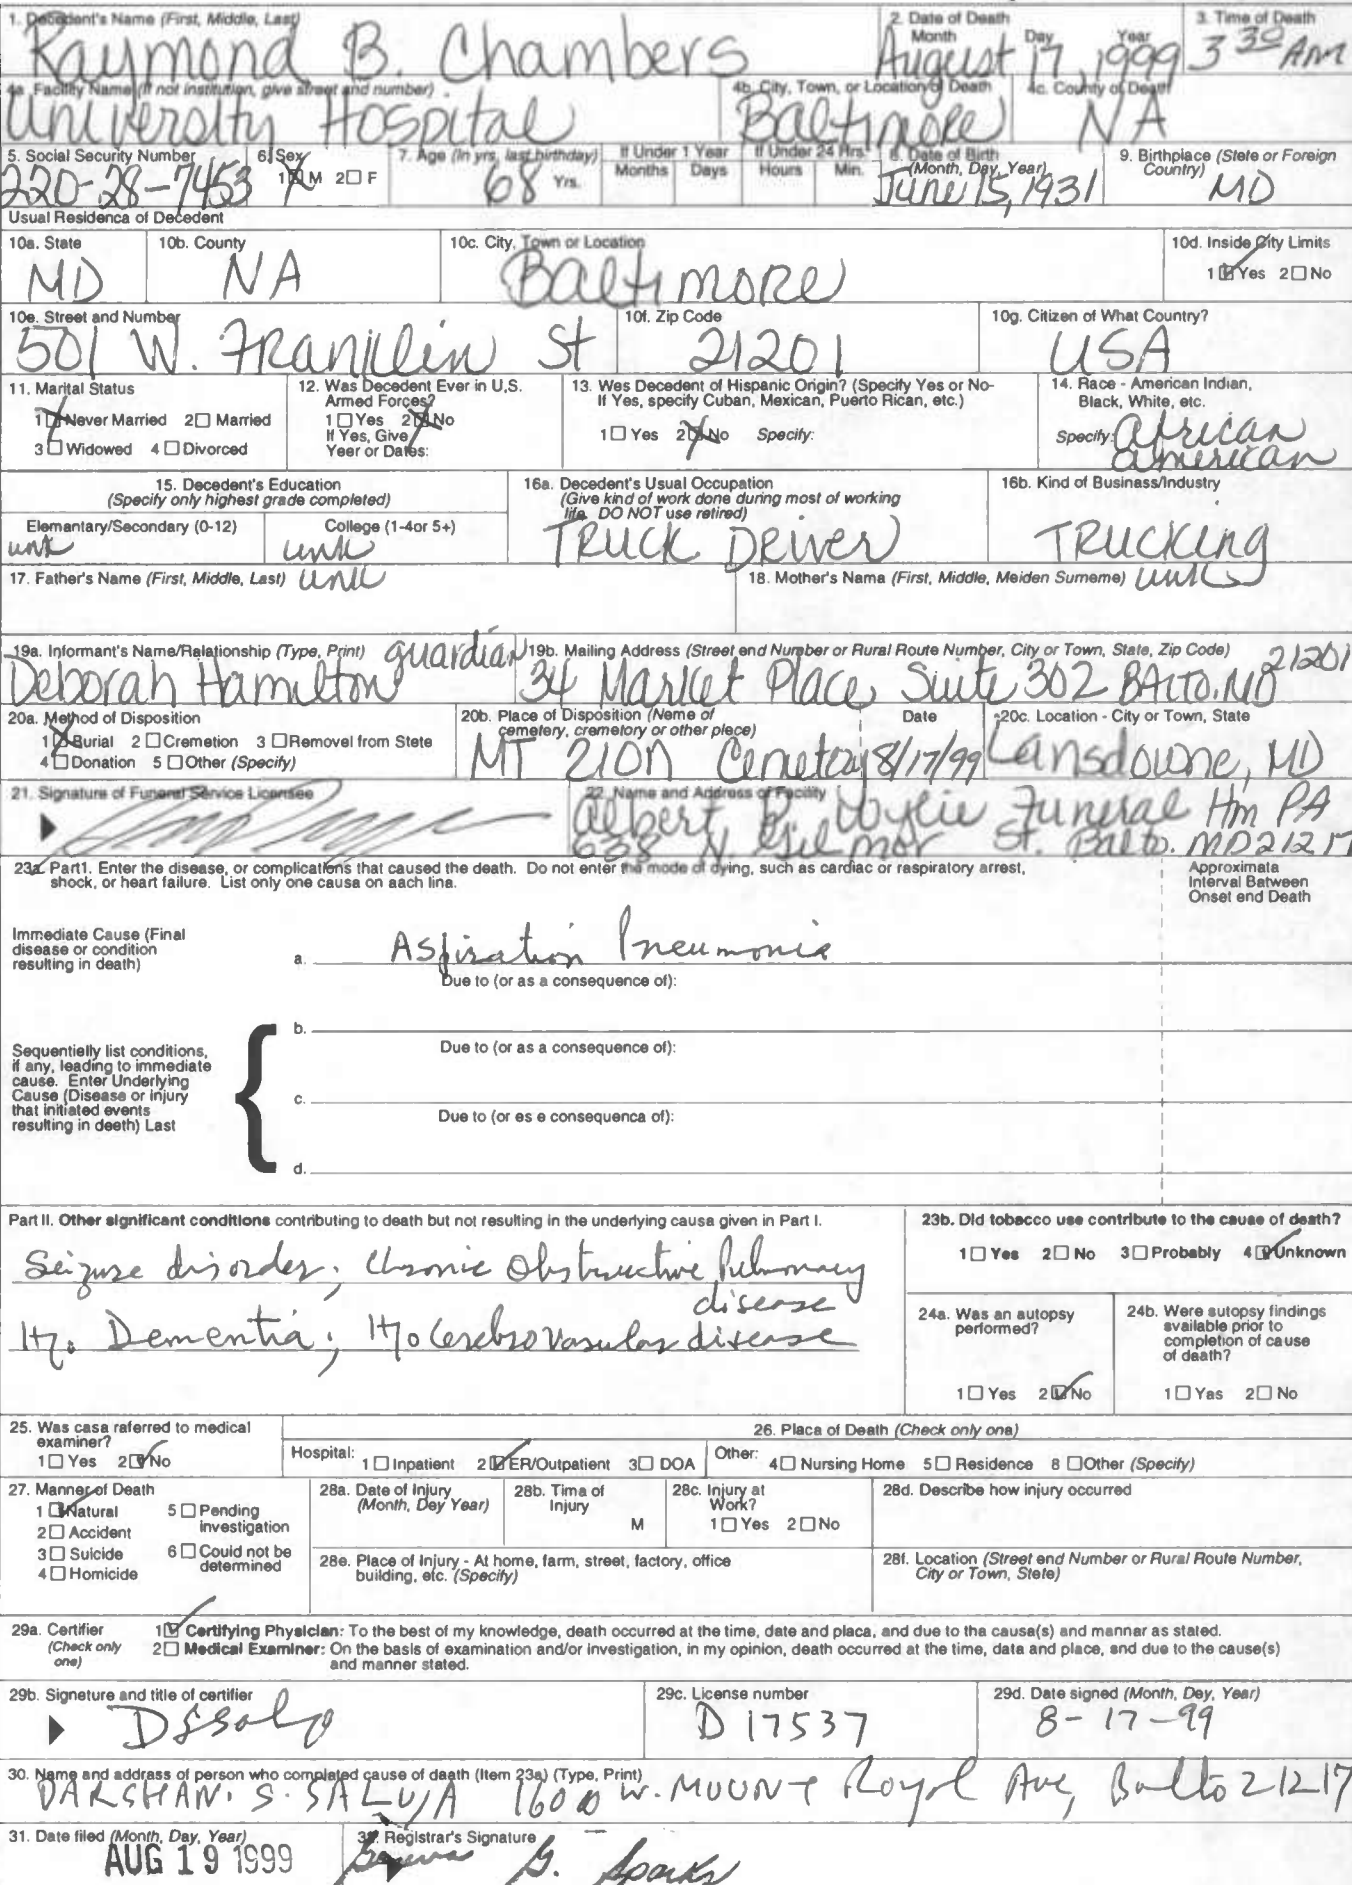 1. Decedent's Name (First, Middle, Last)
Raymond B. Chambers
2. Date of Death
Month Day Year
August 17, 1999
3. Time of Death
3 30 AM
4a. Facility Name (If not institution, give street and number)
University Hospital
4b. City, Town, or Location of Death
Baltimore
4c. County of Death
NA
5. Social Security Number
220-28-7453
6. Sex
1☒ M 2☐ F
7. Age (In yrs. last birthday)
68 Yrs.
If Under 1 Year
Months Days
If Under 24 Hrs.
Hours Min.
8. Date of Birth
(Month, Day, Year)
June 15, 1931
9. Birthplace (State or Foreign
Country)
MD
Usual Residence of Decedent
10a. State
MD
10b. County
NA
10c. City, Town or Location
Baltimore
10d. Inside City Limits
1☑ Yes 2☐ No
10e. Street and Number
501 W. Franklin St
10f. Zip Code
21201
10g. Citizen of What Country?
USA
11. Marital Status
1☒ Never Married 2☐ Married
3☐ Widowed 4☐ Divorced
12. Was Decedent Ever in U.S.
Armed Forces?
1☐ Yes 2☒ No
If Yes, Give
Year or Dates:
13. Was Decedent of Hispanic Origin? (Specify Yes or No-
If Yes, specify Cuban, Mexican, Puerto Rican, etc.)
1☐ Yes 2☒ No Specify:
14. Race - American Indian,
Black, White, etc.
Specify: African
American
15. Decedent's Education
(Specify only highest grade completed)
Elementary/Secondary (0-12)
unk
College (1-4or 5+)
unk
16a. Decedent's Usual Occupation
(Give kind of work done during most of working
life. DO NOT use retired)
Truck Driver
16b. Kind of Business/Industry
Trucking
17. Father's Name (First, Middle, Last) unk
18. Mother's Name (First, Middle, Maiden Surname) unk
19a. Informant's Name/Relationship (Type, Print) guardian
Deborah Hamilton
19b. Mailing Address (Street and Number or Rural Route Number, City or Town, State, Zip Code) 21201
34 Market Place, Suite 302 BALTO. MD
20a. Method of Disposition
1☒ Burial 2☐ Cremetion 3☐ Removel from Stete
4☐ Donation 5☐ Other (Specify)
20b. Place of Disposition (Neme of
cemetery, cremetory or other plece)
MT Zion Cemetery
Date
8/17/99
20c. Location - City or Town, State
Lansdowne, MD
21. Signature of Funeral Service Licensee
22. Name and Address of Facility
Albert P. Wylie Funeral Hm PA
638 N. Gilmor St. Balto. MD 21217
23a. Part1. Enter the disease, or complications that caused the death. Do not enter the mode of dying, such as cardiac or respiratory arrest,
shock, or heart failure. List only one causa on aach lina.
Approximata
Interval Batween
Onset end Death
Immediate Cause (Final
disease or condition
resulting in death)
a. Aspiration Pneumonia
Due to (or as a consequence of):
b.
Due to (or as a consequence of):
Sequentielly list conditions,
if any, leading to immediate
cause. Enter Underlying
Cause (Disease or injury
that initiated events
resulting in deeth) Last
c.
Due to (or es e consequenca of):
d.
Part II. Other significant conditions contributing to death but not resulting in the underlying causa given in Part I.
Seizure disorder; Chronic Obstructive Pulmonary
disease
H/o Dementia; H/o Cerebrovascular disease
23b. Did tobacco use contribute to the cause of death?
1☐ Yes 2☐ No 3☐ Probably 4☑ Unknown
24a. Was an autopsy
performed?
1☐ Yes 2☑ No
24b. Were autopsy findings
available prior to
completion of cause
of daath?
1☐ Yas 2☐ No
25. Was casa referred to medical
examiner?
1☐ Yes 2☑ No
26. Place of Death (Check only ona)
Hospital: 1☐ Inpatient 2☑ ER/Outpatient 3☐ DOA
Other: 4☐ Nursing Home 5☐ Residence 8 ☐ Other (Specify)
27. Manner of Death
1☑ Natural 5☐ Pending
investigation
2☐ Accident
3☐ Suicide 6☐ Could not be
determined
4☐ Homicide
28a. Date of Injury
(Month, Dey Year)
28b. Tima of
Injury
M
28c. Injury at
Work?
1☐ Yes 2☐ No
28d. Describe how injury occurred
28e. Place of Injury - At home, farm, street, factory, office
building, etc. (Specify)
28f. Location (Street end Number or Rural Route Number,
City or Town, Stete)
29a. Certifier
(Check only
one)
1☑ Certifying Physician: To the best of my knowledge, death occurred at the time, date and placa, and due to the causa(s) and manner as stated.
2☐ Medical Examiner: On the basis of examination and/or investigation, in my opinion, death occurred at the time, data and place, and due to the cause(s)
and manner stated.
29b. Signeture and title of certifier
29c. License number
D 17537
29d. Date signed (Month, Dey, Year)
8-17-99
30. Name and address of person who complated cause of death (Item 23a) (Type, Print)
DARSHAN. S. SALUJA 1600 W. MOUNT Royal Ave, Balto 21217
31. Date filed (Month, Day, Year)
AUG 19 1999
32. Registrar's Signature
Geneva G. Sparks